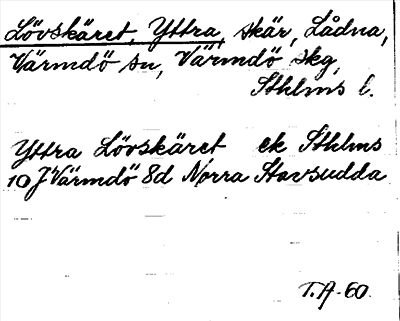 Lövskäret, Yttra, skär, Lådna,
Värmdö sn, Värmdö skg,
Sthlms l.
Yttra Lövskäret ek Sthlms
10 J Värmdö 8d Norra Stavsudda
T.A-60